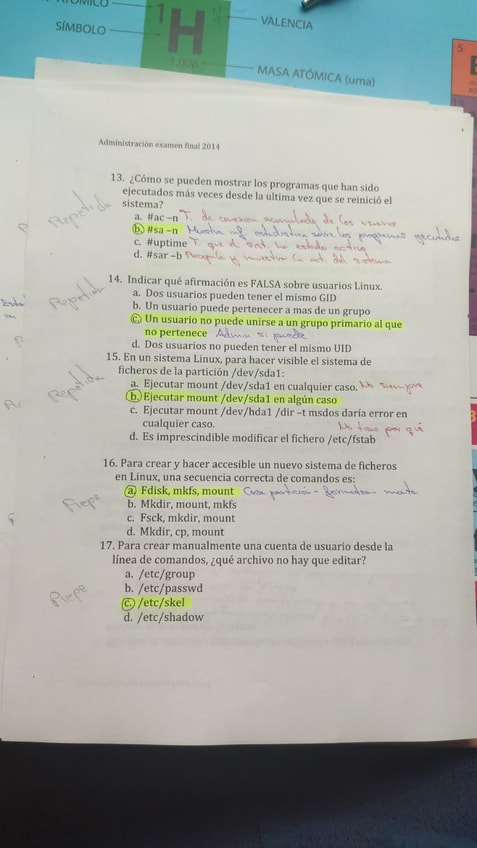 SÍMBOLO
1
H
1,008
VALENCIA
MASA ATÓMICA (uma)
5
Administración examen final 2014
13. ¿Cómo se pueden mostrar los programas que han sido
ejecutados más veces desde la ultima vez que se reinició el
sistema?
Repetida
a. #ac –n T. de conexión acumulada de los usuarios
b. #sa –n Muestra inf. estadística sobre los programas ejecutados
c. #uptime T. que el sist. ha estado activo
d. #sar –b Recopila y muestra la act. del sistema
14. Indicar qué afirmación es FALSA sobre usuarios Linux.
Repetida
a. Dos usuarios pueden tener el mismo GID
b. Un usuario puede pertenecer a mas de un grupo
c. Un usuario no puede unirse a un grupo primario al que
no pertenece Admin si puede
d. Dos usuarios no pueden tener el mismo UID
15. En un sistema Linux, para hacer visible el sistema de
ficheros de la partición /dev/sda1:
Repetida
a. Ejecutar mount /dev/sda1 en cualquier caso. No siempre
b. Ejecutar mount /dev/sda1 en algún caso
c. Ejecutar mount /dev/hda1 /dir –t msdos daría error en
cualquier caso. No tiene por qué
d. Es imprescindible modificar el fichero /etc/fstab
16. Para crear y hacer accesible un nuevo sistema de ficheros
en Linux, una secuencia correcta de comandos es:
Repe
a. Fdisk, mkfs, mount Crea partición - formatea - monta
b. Mkdir, mount, mkfs
c. Fsck, mkdir, mount
d. Mkdir, cp, mount
17. Para crear manualmente una cuenta de usuario desde la
línea de comandos, ¿qué archivo no hay que editar?
Repe
a. /etc/group
b. /etc/passwd
c. /etc/skel
d. /etc/shadow